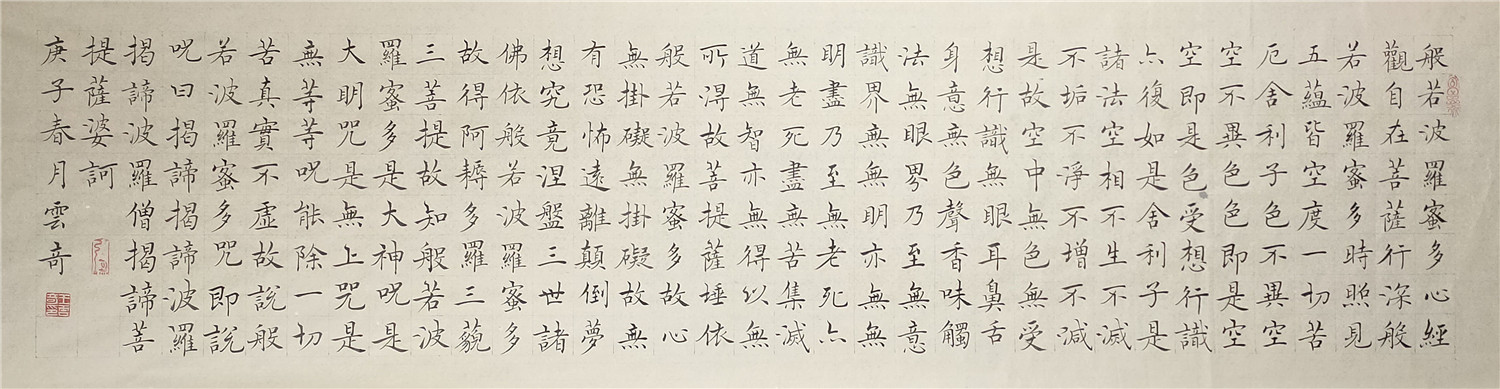 般若波羅蜜多心經
觀自在菩薩行深般
若波羅蜜多時照見
五蘊皆空度一切苦
厄舍利子色不異空
空不異色色即是空
空即是色受想行識
亦復如是舍利子是
諸法空相不生不滅
不垢不淨不增不減
是故空中無色無受
想行識無眼耳鼻舌
身意無色聲香味觸
法無眼界乃至無意
識界無無明亦無無
明盡乃至無老死亦
無老死盡無苦集滅
道無智亦無得以無
所得故菩提薩埵依
般若波羅蜜多故心
無掛礙無掛礙故無
有恐怖遠離顛倒夢
想究竟涅盤三世諸
佛依般若波羅蜜多
故得阿耨多羅三藐
三菩提故知般若波
羅蜜多是大神咒是
大明咒是無上咒是
無等等咒能除一切
苦真實不虛故說般
若波羅蜜多咒即說
咒曰揭諦揭諦波羅
揭諦波羅僧揭諦菩
提薩婆訶
庚子春月雲奇